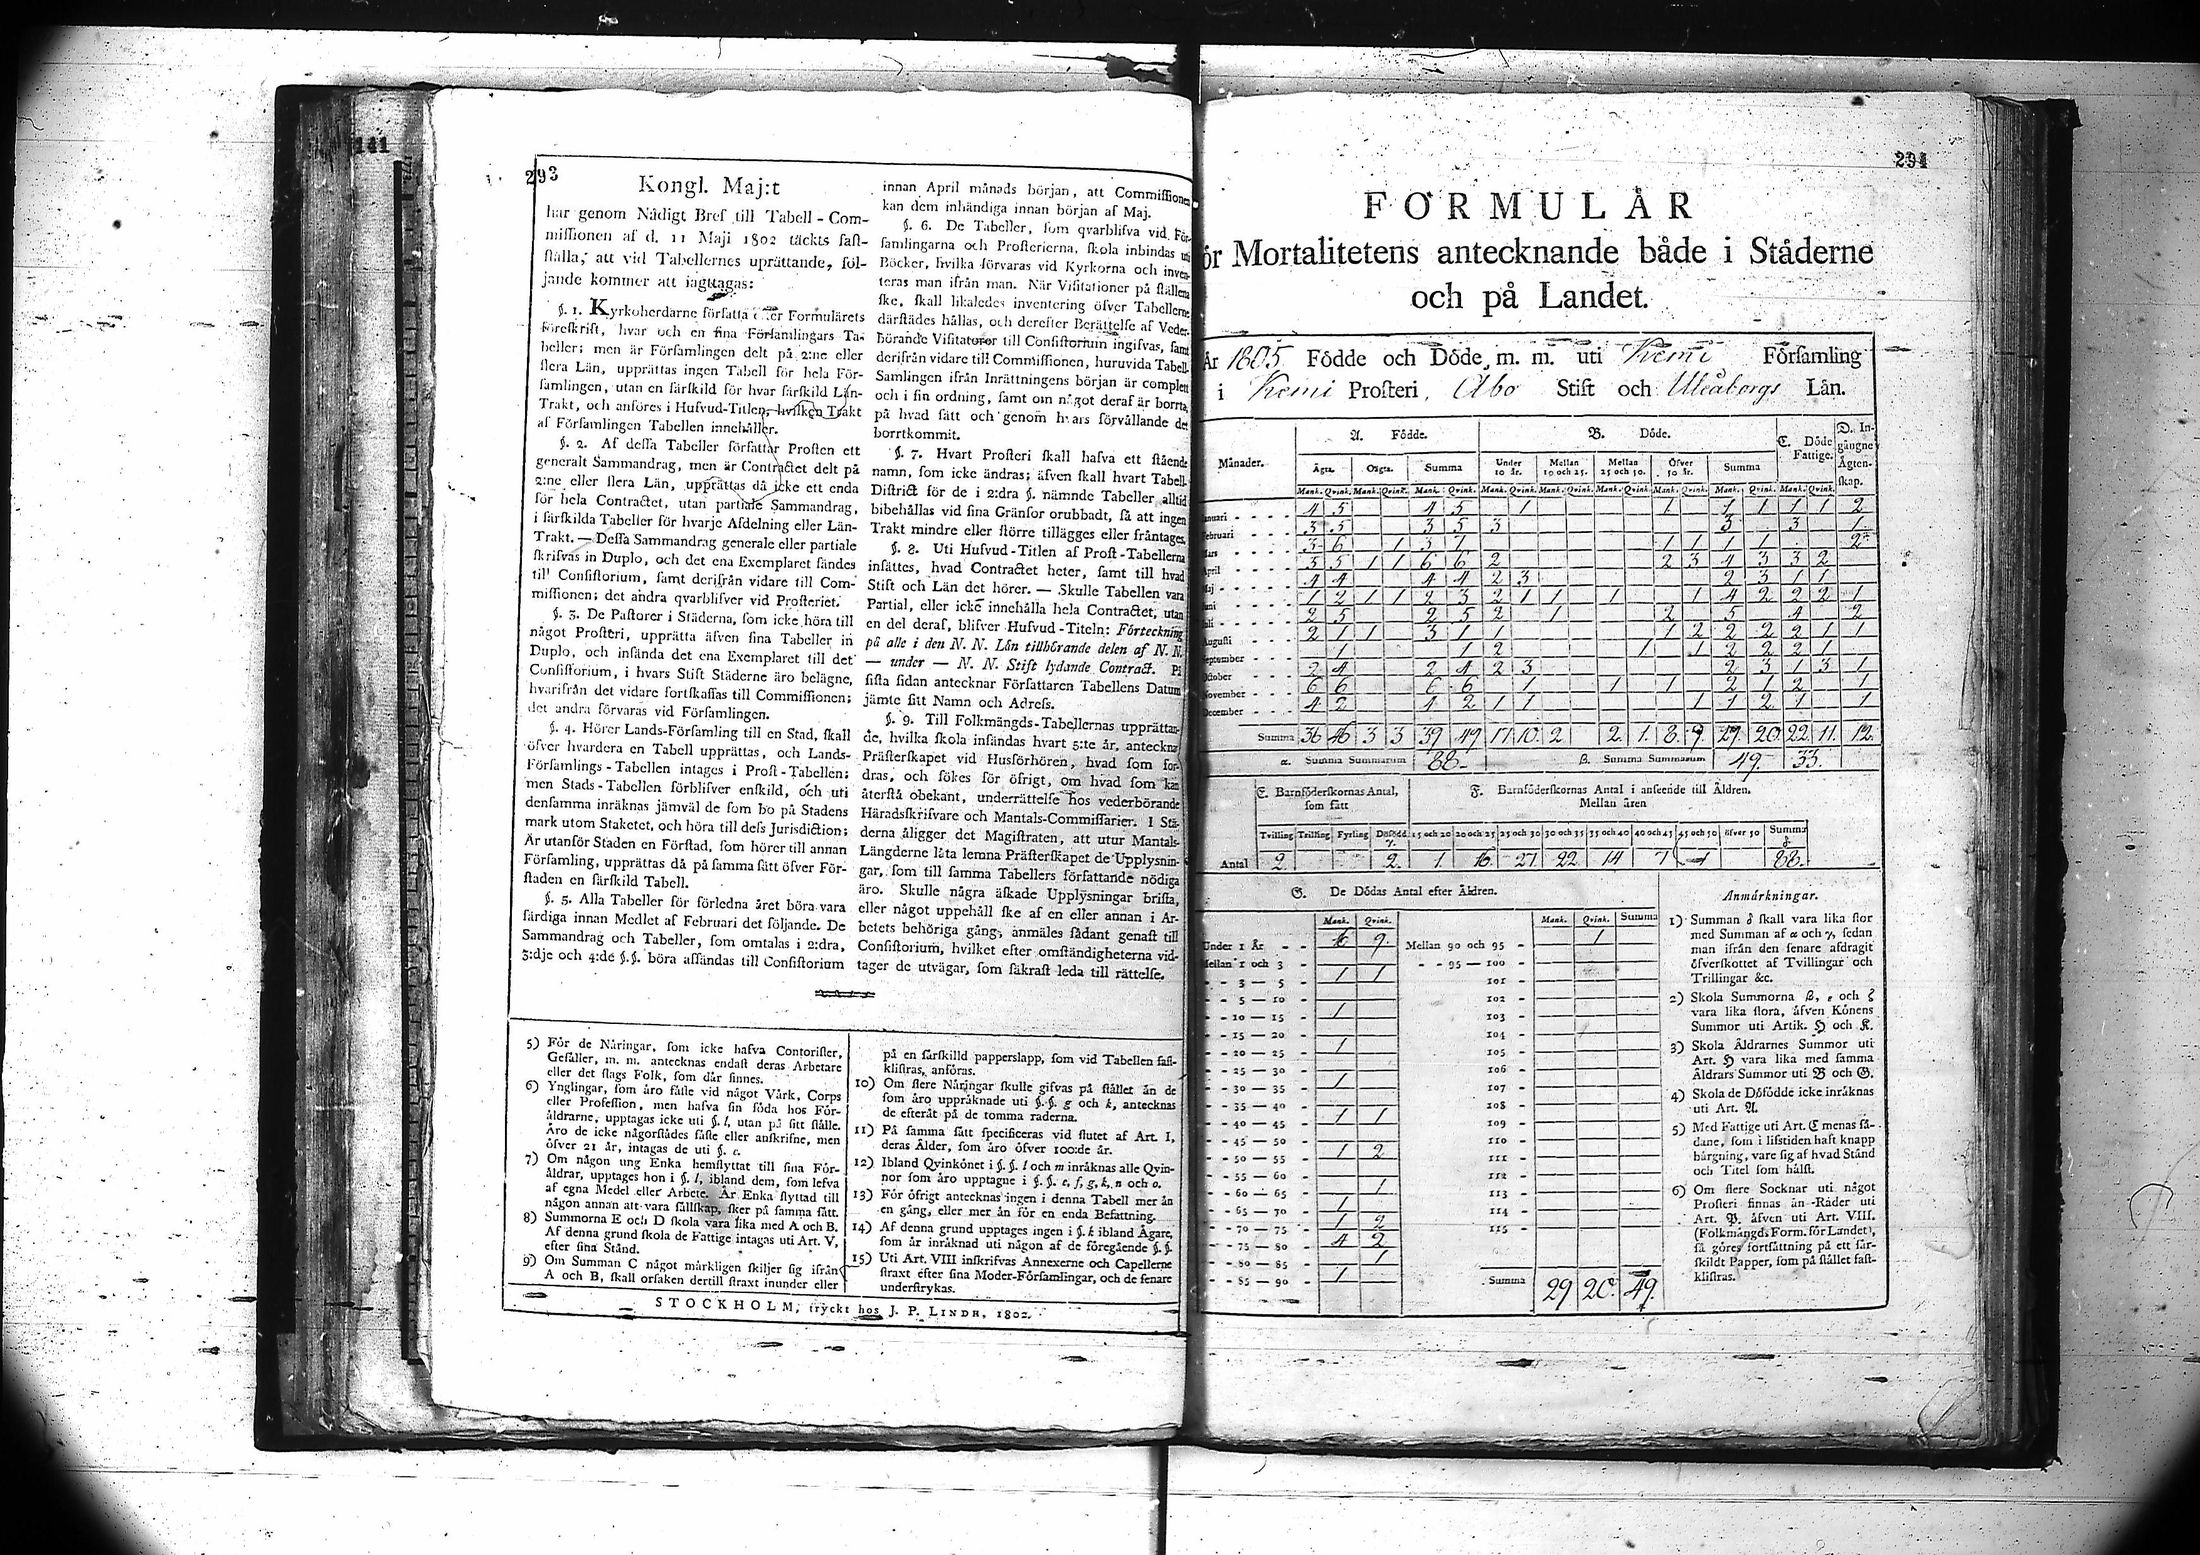 141
293
Kongl. Maj:t
har genom Nådigt Bref till Tabell-Com-
missionen af d. 11 Maji 1802 täckts fast-
ställa, att vid Tabellernes uprättande, föl-
jande kommer att iagttagas:
§. 1. Kyrkoherdarne författa efter Formulärets
föreskrift, hvar och en sina Församlingars Ta-
beller; men är Församlingen delt på 2:ne eller
flera Län, upprättas ingen Tabell för hela För-
samlingen, utan en särskild för hvar särskild Län-
Trakt, och anföres i Hufvud-Titlen, hvilken Trakt
af Församlingen Tabellen innehåller.
§. 2. Af dessa Tabeller författar Prosten ett
generalt Sammandrag, men är Contractet delt på
2:ne eller flera Län, upprättas då icke ett enda
för hela Contractet, utan partiale Sammandrag,
i särskilda Tabeller för hvarje Afdelning eller Län-
Trakt. — Dessa Sammandrag generale eller partiale
skrifvas in Duplo, och det ena Exemplaret sändes
till Consistorium, samt derifrån vidare till Com-
missionen; det andra qvarblifver vid Prosteriet.
§. 3. De Pastorer i Städerna, som icke höra till
något Prosteri, upprätta äfven sina Tabeller in
Duplo, och insända det ena Exemplaret till det
Consistorium, i hvars Stift Städerne äro belägne,
hvarifrån det vidare fortskaffas till Commissionen;
det andra förvaras vid Församlingen.
§. 4. Hörer Lands-Församling till en Stad, skall
öfver hvardera en Tabell upprättas, och Lands-
Församlings-Tabellen intages i Prost-Tabellen;
men Stads-Tabellen förblifver enskild, och uti
densamma inräknas jämväl de som bo på Stadens
mark utom Staketet, och höra till dess Jurisdiction;
Är utanför Staden en Förstad, som hörer till annan
Församling, upprättas då på samma sätt öfver För-
staden en särskild Tabell.
§. 5. Alla Tabeller för förledna året böra vara
färdiga innan Medlet af Februari det följande. De
Sammandrag och Tabeller, som omtalas i 2:dra,
3:dje och 4:de §.§. böra affändas till Consistorium
innan April månads början, att Commissionen
kan dem inhändiga innan början af Maj.
§. 6. De Tabeller, som qvarblifva vid För-
samlingarna och Prosterierna, skola inbindas uti
Böcker, hvilka förvaras vid Kyrkorna och inven-
teras man ifrån man. När Visitationer på ställena
ske, skall likaledes inventering öfver Tabellerne
därstädes hållas, och derefter Berättelse af Veder-
börande Visitatorer till Consistorium ingifvas, samt
derifrån vidare till Commissionen, huruvida Tabell-
Samlingen ifrån Inrättningens början är complett
och i sin ordning, samt om något deraf är borrta,
på hvad sätt och genom hvars förvållande det
borrtkommit.
§. 7. Hvart Prosteri skall hafva ett stående
namn, som icke ändras; äfven skall hvart Tabell-
District för de i 2:dra §. nämnde Tabeller alltid
bibehållas vid sina Gränsor orubbadt, så att ingen
Trakt mindre eller större tillägges eller fråntages.
§. 8. Uti Hufvud-Titlen af Prost-Tabellerna
insättes, hvad Contractet heter, samt till hvad
Stift och Län det hörer. — Skulle Tabellen vara
Partial, eller icke innehålla hela Contractet, utan
en del deraf, blifver Hufvud-Titeln: Förteckning
på alle i den N. N. Län tillhörande delen af N. N.
— under — N. N. Stift lydande Contract. På
sista sidan antecknar Författaren Tabellens Datum
jämte sitt Namn och Adress.
§. 9. Till Folkmängds-Tabellernas upprättan-
de, hvilka skola insändas hvart 5:te år, anteckna
Prästerskapet vid Husförhören, hvad som for-
dras, och sökes för öfrigt, om hvad som kan
återstå obekant, underrättelse hos vederbörande
Häradsskrifvare och Mantals-Commissarier. I Stä-
derna åligger det Magistraten, att utur Mantals-
Längderne låta lemna Prästerskapet de Upplysnin-
gar, som till samma Tabellers författande nödiga
äro. Skulle några äskade Upplysningar brista,
eller något uppehåll ske af en eller annan i Ar-
betets behöriga gång, anmäles sådant genast till
Consistorium, hvilket efter omständigheterna vid-
tager de utvägar, som säkrast leda till rättelse.
5) För de Näringar, som icke hafva Contorister,
Gesäller, m. m. antecknas endast deras Arbetare
eller det slags Folk, som där finnes.
6) Ynglingar, som äro fäste vid något Värk, Corps
eller Profession, men hafva sin föda hos För-
äldrarne, upptagas icke uti §. l, utan på sitt ställe.
Äro de icke någorstädes fäste eller anskrifne, men
öfver 21 år, intagas de uti §. c.
7) Om någon ung Enka hemflyttat till sina För-
äldrar, upptages hon i §. l, ibland dem, som lefva
af egna Medel eller Arbete. Är Enka flyttad till
någon annan att vara sällskap, sker på samma sätt.
8) Summorna E och D skola vara lika med A och B.
Af denna grund skola de Fattige intagas uti Art. V,
efter sina Stånd.
9) Om Summan C något märkligen skiljer sig ifrån
A och B, skall orsaken dertill straxt inunder eller
på en särskilld papperslapp, som vid Tabellen fast-
klistras, anföras.
10) Om flere Näringar skulle gifvas på stället än de
som äro uppräknade uti §.§. g och k, antecknas
de efteråt på de tomma raderna.
11) På samma sätt specificeras vid slutet af Art. I,
deras Ålder, som äro öfver 100:de år.
12) Ibland Qvinkönet i §. §. l och m inräknas alle Qvin-
nor som äro upptagne i §. §. e, f, g, k, n och o.
13) För öfrigt antecknas ingen i denna Tabell mer än
en gång, eller mer än för en enda Befattning.
14) Af denna grund upptages ingen i §. k ibland Ägare,
som är inräknad uti någon af de föregående §. §.
15) Uti Art. VIII inskrifvas Annexerne och Capellerne
straxt efter sina Moder-Församlingar, och de senare
understrykas.
STOCKHOLM, tryckt hos J. P. LINDH, 1802.
294
FORMULÄR
för Mortalitetens antecknande både i Städerne
och på Landet.
År 1805 Födde och Döde m. m. uti Kemi Församling
i Kemi Prosteri, Abo Stift och Uleåborgs Län.
Månader. A. Födde. B. Döde. C. Döde Fattige. D. Ingångne Ägtenskap.
Ägta. Oägta. Summa Under 10 år. Mellan 10 och 25. Mellan 25 och 50. Öfver 50 år. Summa
Mank. Qvink. Mank. Qvink. Mank. Qvink. Mank. Qvink. Mank. Qvink. Mank. Qvink. Mank. Qvink. Mank. Qvink. Mank. Qvink.
Januari 4 5 4 5 1 1 1 1 1 1 2
Februari 3 5 3 5 3 3 3 1
Mars 3 6 1 3 7 1 1 1 1 2
April 3 5 1 1 6 6 2 2 3 4 3 3 2
Maj 4 4 4 4 2 3 2 3 1 1
Juni 1 2 1 1 2 3 2 1 1 1 1 4 2 2 2 1
Juli 2 5 2 5 2 1 2 5 4 2
Augusti 2 1 1 3 1 1 1 2 2 2 2 1 1
September 1 1 2 1 1 2 2 2 1
October 2 4 2 4 2 3 2 3 1 3 1
November 6 6 6 6 1 1 1 2 1 2 1
December 4 2 4 2 1 1 1 1 2 1 1
Summa 36 46 3 3 39 49 17 10 2 2 1 8 9 29 20 22 11 12
α. Summa Summarum 88 β. Summa Summarum 49. 33.
E. Barnföderskornas Antal, som fått
F. Barnföderskornas Antal i anseende till Åldren.
Mellan åren
Tvilling Trilling Fyrling Dödfödd. 15 och 20 20 och 25 25 och 30 30 och 35 35 och 40 40 och 45 45 och 50 öfver 50 Summa
Antal 2 2 1 16 27 22 14 7 1 88
G. De Dödas Antal efter Åldren.
Mank. Qvink. Mank. Qvink. Summa
Under 1 År 16 9 Mellan 90 och 95 1
Mellan 1 och 3 95 — 100
3 — 5 1 1 101
5 — 10 102
10 — 15 1 103
15 — 20 104
20 — 25 1 105
25 — 30 106
30 — 35 1 107
35 — 40 108
40 — 45 1 1 109
45 — 50 110
50 — 55 1 2 111
55 — 60 112
60 — 65 1 113
65 — 70 1 114
70 — 75 1 2 115
75 — 80 4 2
80 — 85 1
85 — 90 1 Summa 29 20 49
Anmärkningar.
1) Summan δ skall vara lika stor
med Summan af α och γ, sedan
man ifrån den senare afdragit
öfverskottet af Tvillingar och
Trillingar &c.
2) Skola Summorna β, ε och ζ
vara lika stora, äfven Könens
Summor uti Artik. H och K.
3) Skola Åldrarnes Summor uti
Art. H vara lika med samma
Åldrars Summor uti B och G.
4) Skola de Döfödde icke inräknas
uti Art. A.
5) Med Fattige uti Art. C menas så-
dane, som i lifstiden haft knapp
bärgning, vare sig af hvad Stånd
och Titel som hälst.
6) Om flere Socknar uti något
Prosteri finnas än Rader uti
Art. B. äfven uti Art. VIII.
(Folkmängds Form. för Landet),
så göres fortsättning på ett sär-
skildt Papper, som på stället fast-
klistras.